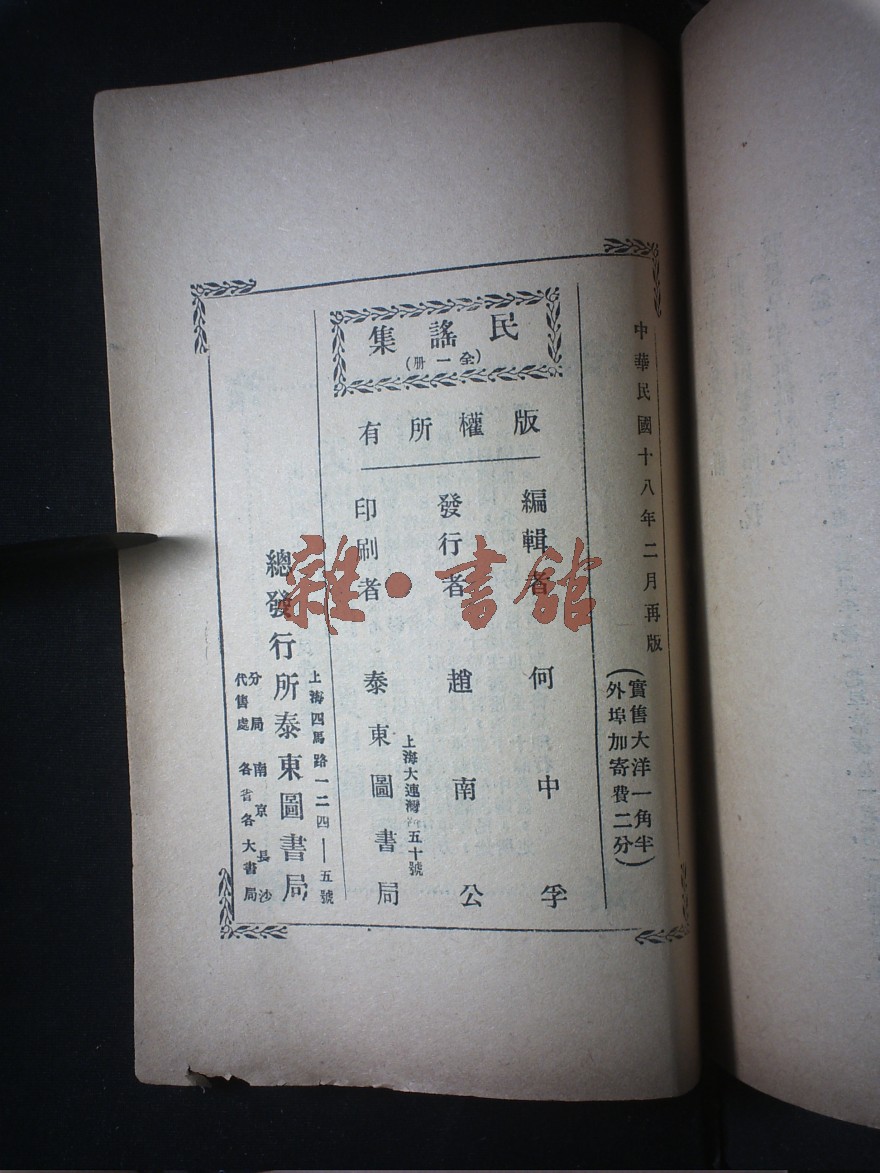 中華民國十八年二月再版
(實售大洋一角半
外埠加寄費二分)
民謠集
(全一册)
版權所有
編輯者 何中孚
發行者 趙南公
上海大連灣路五十號
印刷者 泰東圖書局
上海四馬路一二四——五號
總發行所泰東圖書局
分局 南京長沙
代售處 各省各大書局
雜·書館